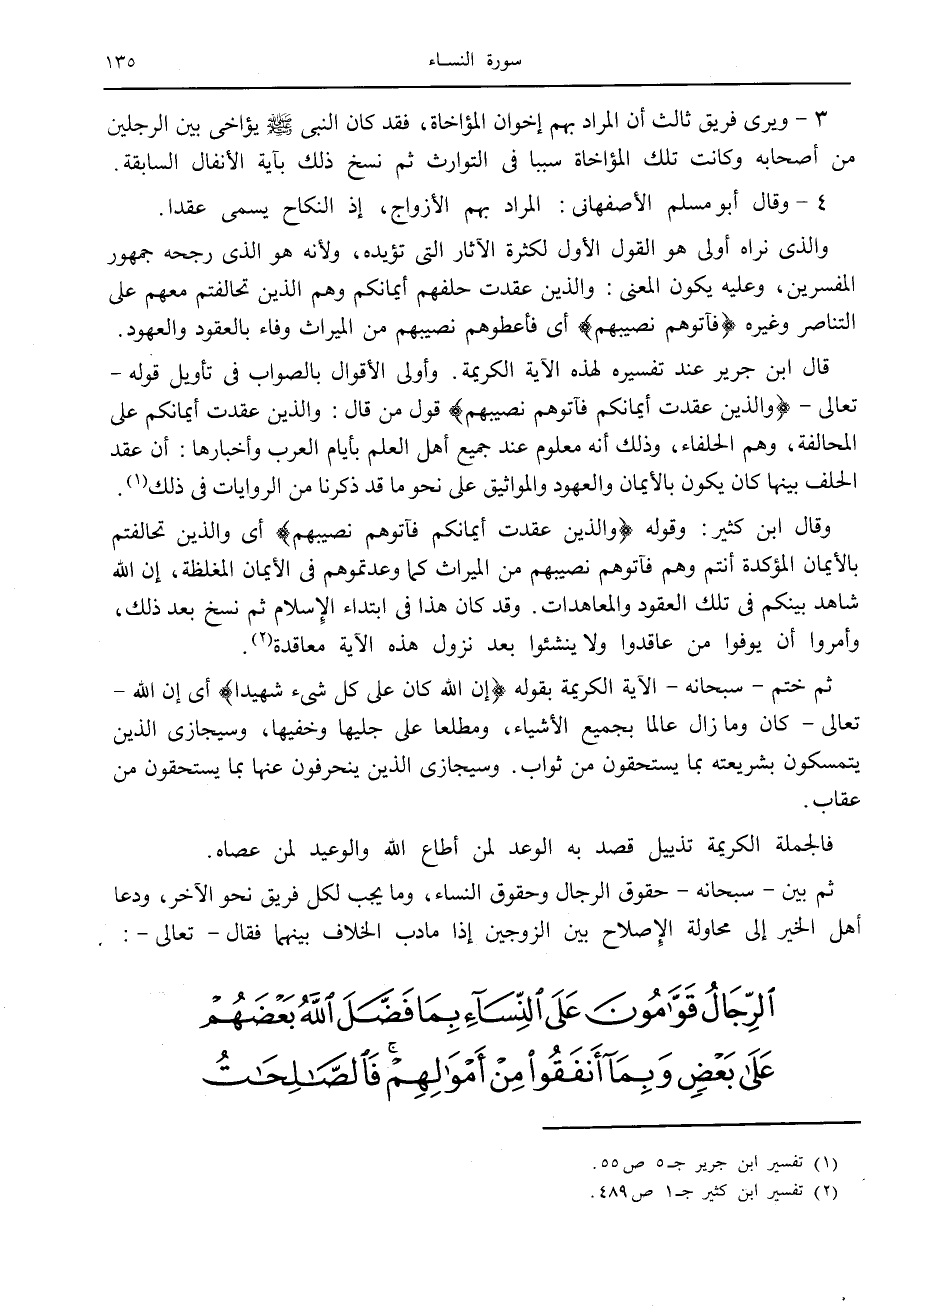 سورة النساء ١٣٥
٣ - ويرى فريق ثالث أن المراد بهم إخوان المؤاخاة، فقد كان النبى ﷺ يؤاخى بين الرجلين
من أصحابه وكانت تلك المؤاخاة سببا فى التوارث ثم نسخ ذلك بآية الأنفال السابقة.
٤ - وقال أبو مسلم الأصفهانى: المراد بهم الأزواج، إذ النكاح يسمى عقدا.
والذى نراه أولى هو القول الأول لكثرة الآثار التى تؤيده، ولأنه هو الذى رجحه جمهور
المفسرين، وعليه يكون المعنى: والذين عقدت حلفهم أيمانكم وهم الذين تحالفتم معهم على
التناصر وغيره ﴿فآتوهم نصيبهم﴾ أى فأعطوهم نصيبهم من الميراث وفاء بالعقود والعهود.
قال ابن جرير عند تفسيره لهذه الآية الكريمة. وأولى الأقوال بالصواب فى تأويل قوله -
تعالى - ﴿والذين عقدت أيمانكم فآتوهم نصيبهم﴾ قول من قال: والذين عقدت أيمانكم على
المحالفة، وهم الحلفاء، وذلك أنه معلوم عند جميع أهل العلم بأيام العرب وأخبارها: أن عقد
الحلف بينها كان يكون بالأيمان والعهود والمواثيق على نحو ما قد ذكرنا من الروايات فى ذلك(١).
وقال ابن كثير: وقوله ﴿والذين عقدت أيمانكم فآتوهم نصيبهم﴾ أى والذين تحالفتم
بالأيمان المؤكدة أنتم وهم فآتوهم نصيبهم من الميراث كما وعدتموهم فى الأيمان المغلظة، إن الله
شاهد بينكم فى تلك العقود والمعاهدات. وقد كان هذا فى ابتداء الإسلام ثم نسخ بعد ذلك،
وأمروا أن يوفوا من عاقدوا ولا ينشئوا بعد نزول هذه الآية معاقدة(٢).
ثم ختم - سبحانه - الآية الكريمة بقوله ﴿إن الله كان على كل شىء شهيدا﴾ أى إن الله -
تعالى - كان وما زال عالما بجميع الأشياء، ومطلعا على جليها وخفيها، وسيجازى الذين
يتمسكون بشريعته بما يستحقون من ثواب. وسيجازى الذين ينحرفون عنها بما يستحقون من
عقاب.
فالجملة الكريمة تذييل قصد به الوعد لمن أطاع الله والوعيد لمن عصاه.
ثم بين - سبحانه - حقوق الرجال وحقوق النساء، وما يجب لكل فريق نحو الآخر، ودعا
أهل الخير إلى محاولة الإصلاح بين الزوجين إذا مادب الخلاف بينهما فقال - تعالى -:
ٱلرِّجَالُ قَوَّٰمُونَ عَلَى ٱلنِّسَآءِ بِمَا فَضَّلَ ٱللَّهُ بَعْضَهُمْ
عَلَىٰ بَعْضٍ وَبِمَآ أَنفَقُوا۟ مِنْ أَمْوَٰلِهِمْ ۚ فَٱلصَّٰلِحَٰتُ
(١) تفسير ابن جرير جـ٥ ص٥٥.
(٢) تفسير ابن كثير جـ١ ص٤٨٩.